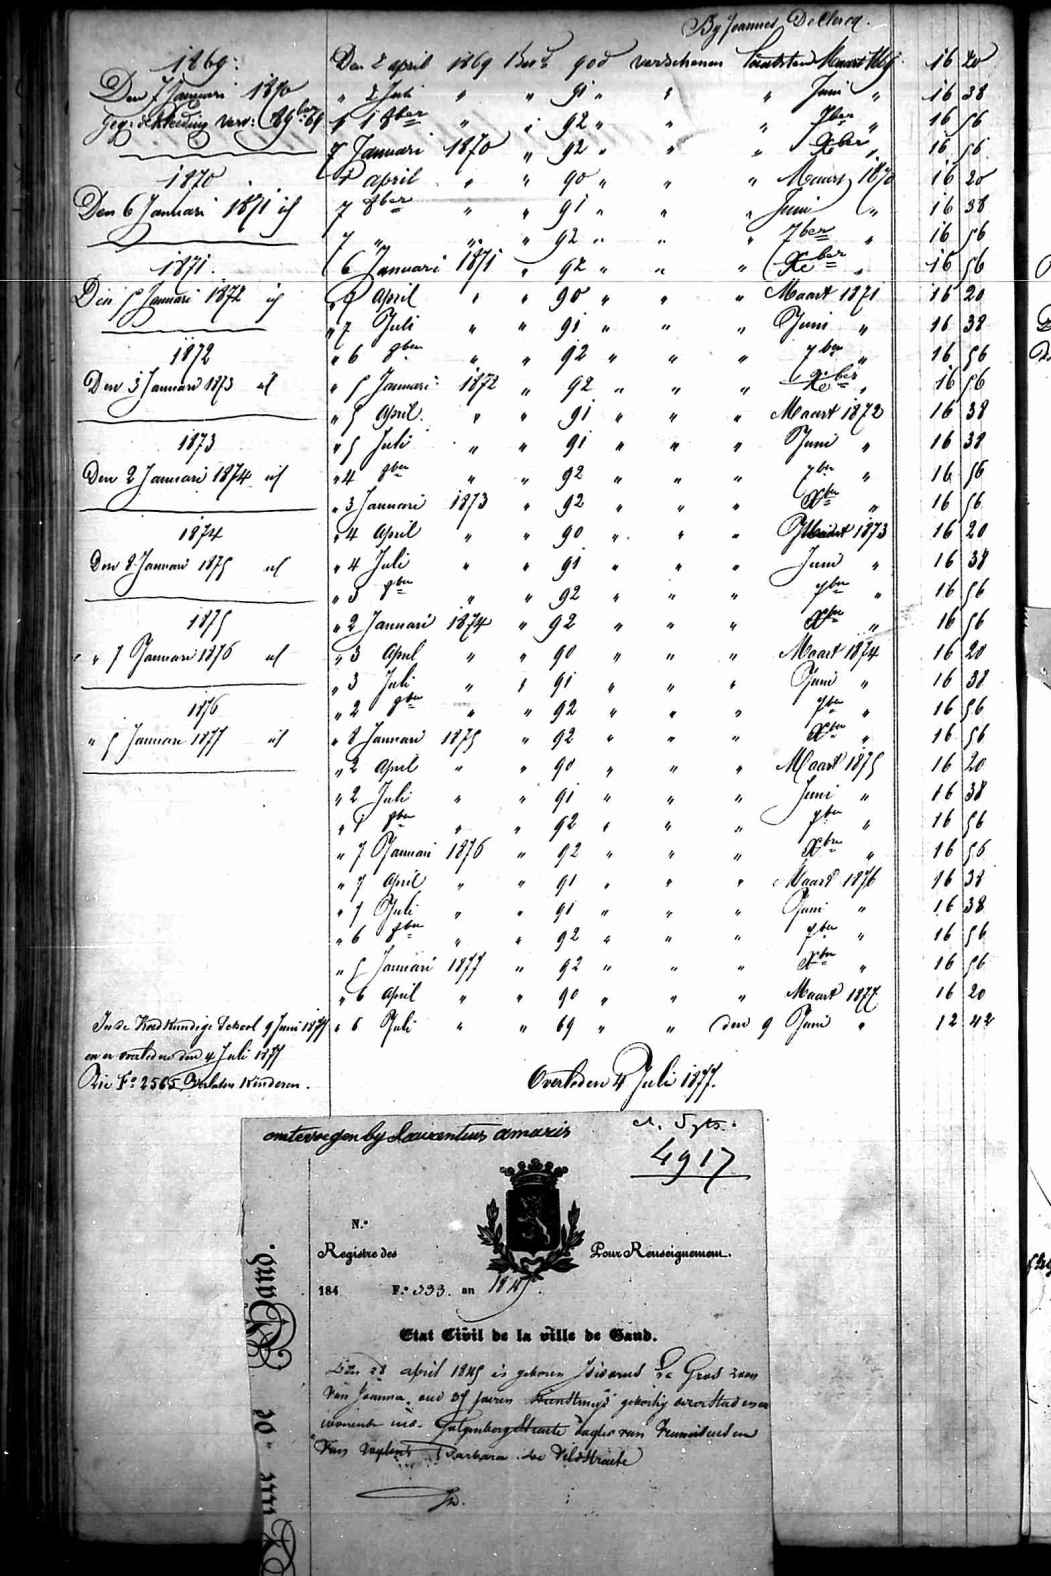 By Joannes DeClercq.
1869:
Den 7 Januari 1870
1870
Den 6 Januari 1871 id
1871.
Den 5 Januari 1872 id
1872
Den 3 Januari 1873 id
1873
Den 2 Januari 1874 id
1874
Den 8 Januari 1875 id
1875
" 7 Januari 1876 id
1876
" 5 Januari 1877 id
Den 2 april 1869 90d verschenen Maart 1869 16 20
" 2 Juli " " 91 " " " Juni " 16 38
" 1 8ber " " 92 " " " 7ber " 16 56
7 Januari 1870 " 92 " " " Xber " 16 56
4 april " " 90 " " " Maart 1870 16 20
7 8ber " " 91 " " " Juni " 16 38
7 " " " 92 " " " 7ber " 16 56
6 Januari 1871 " 92 " " " Xber " 16 56
" 7 April " " 90 " " " Maart 1871 16 20
" 7 Juli " " 91 " " " Juni " 16 38
" 6 8ber " " 92 " " " 7ber " 16 56
" 5 Januari 1872 " 92 " " " Xber " 16 56
" 5 April " " 91 " " " Maart 1872 16 38
" 5 Juli " " 91 " " " Juni " 16 38
" 4 8ber " " 92 " " " 7ber " 16 56
" 3 Januari 1873 " 92 " " " Xber " 16 56
" 4 April " " 90 " " " Maart 1873 16 20
" 4 Juli " " 91 " " " Juni " 16 38
" 3 8ber " " 92 " " " 7ber " 16 56
" 2 Januari 1874 " 92 " " " Xber " 16 56
" 3 April " " 90 " " " Maart 1874 16 20
" 3 Juli " " 91 " " " Juni " 16 38
" 2 8ber " " 92 " " " 7ber " 16 56
" 8 Januari 1875 " 92 " " " Xber " 16 56
" 2 April " " 90 " " " Maart 1875 16 20
" 2 Juli " " 91 " " " Juni " 16 38
" 1 8ber " " 92 " " " 7ber " 16 56
" 7 Januari 1876 " 92 " " " Xber " 16 56
" 7 April " " 91 " " " Maart 1876 16 38
" 7 Juli " " 91 " " " Juni " 16 38
" 6 8ber " " 92 " " " 7ber " 16 56
" 5 Januari 1877 " 92 " " " Xber " 16 56
" 6 April " " 90 " " " Maart 1877 16 20
" 6 Juli " " 69 " " den 9 Juni " 12 42
In de Kundige School 9 Juni 1877
en er overleden den 4 Juli 1877
Zie F° 2565 Verlaten Kinderen.
Overleden 4 Juli 1877.
ontervregen by Laurentius amaris
4917
N.°
Registre des Pour Renseignemen.
184 F.° 333. an 1845.
Etat Civil de la ville de Gand.
Den 28 april 1845 is geboren De Groo zoon
Van Joanna, oud 37 jaren
Barbara de Veldstraete